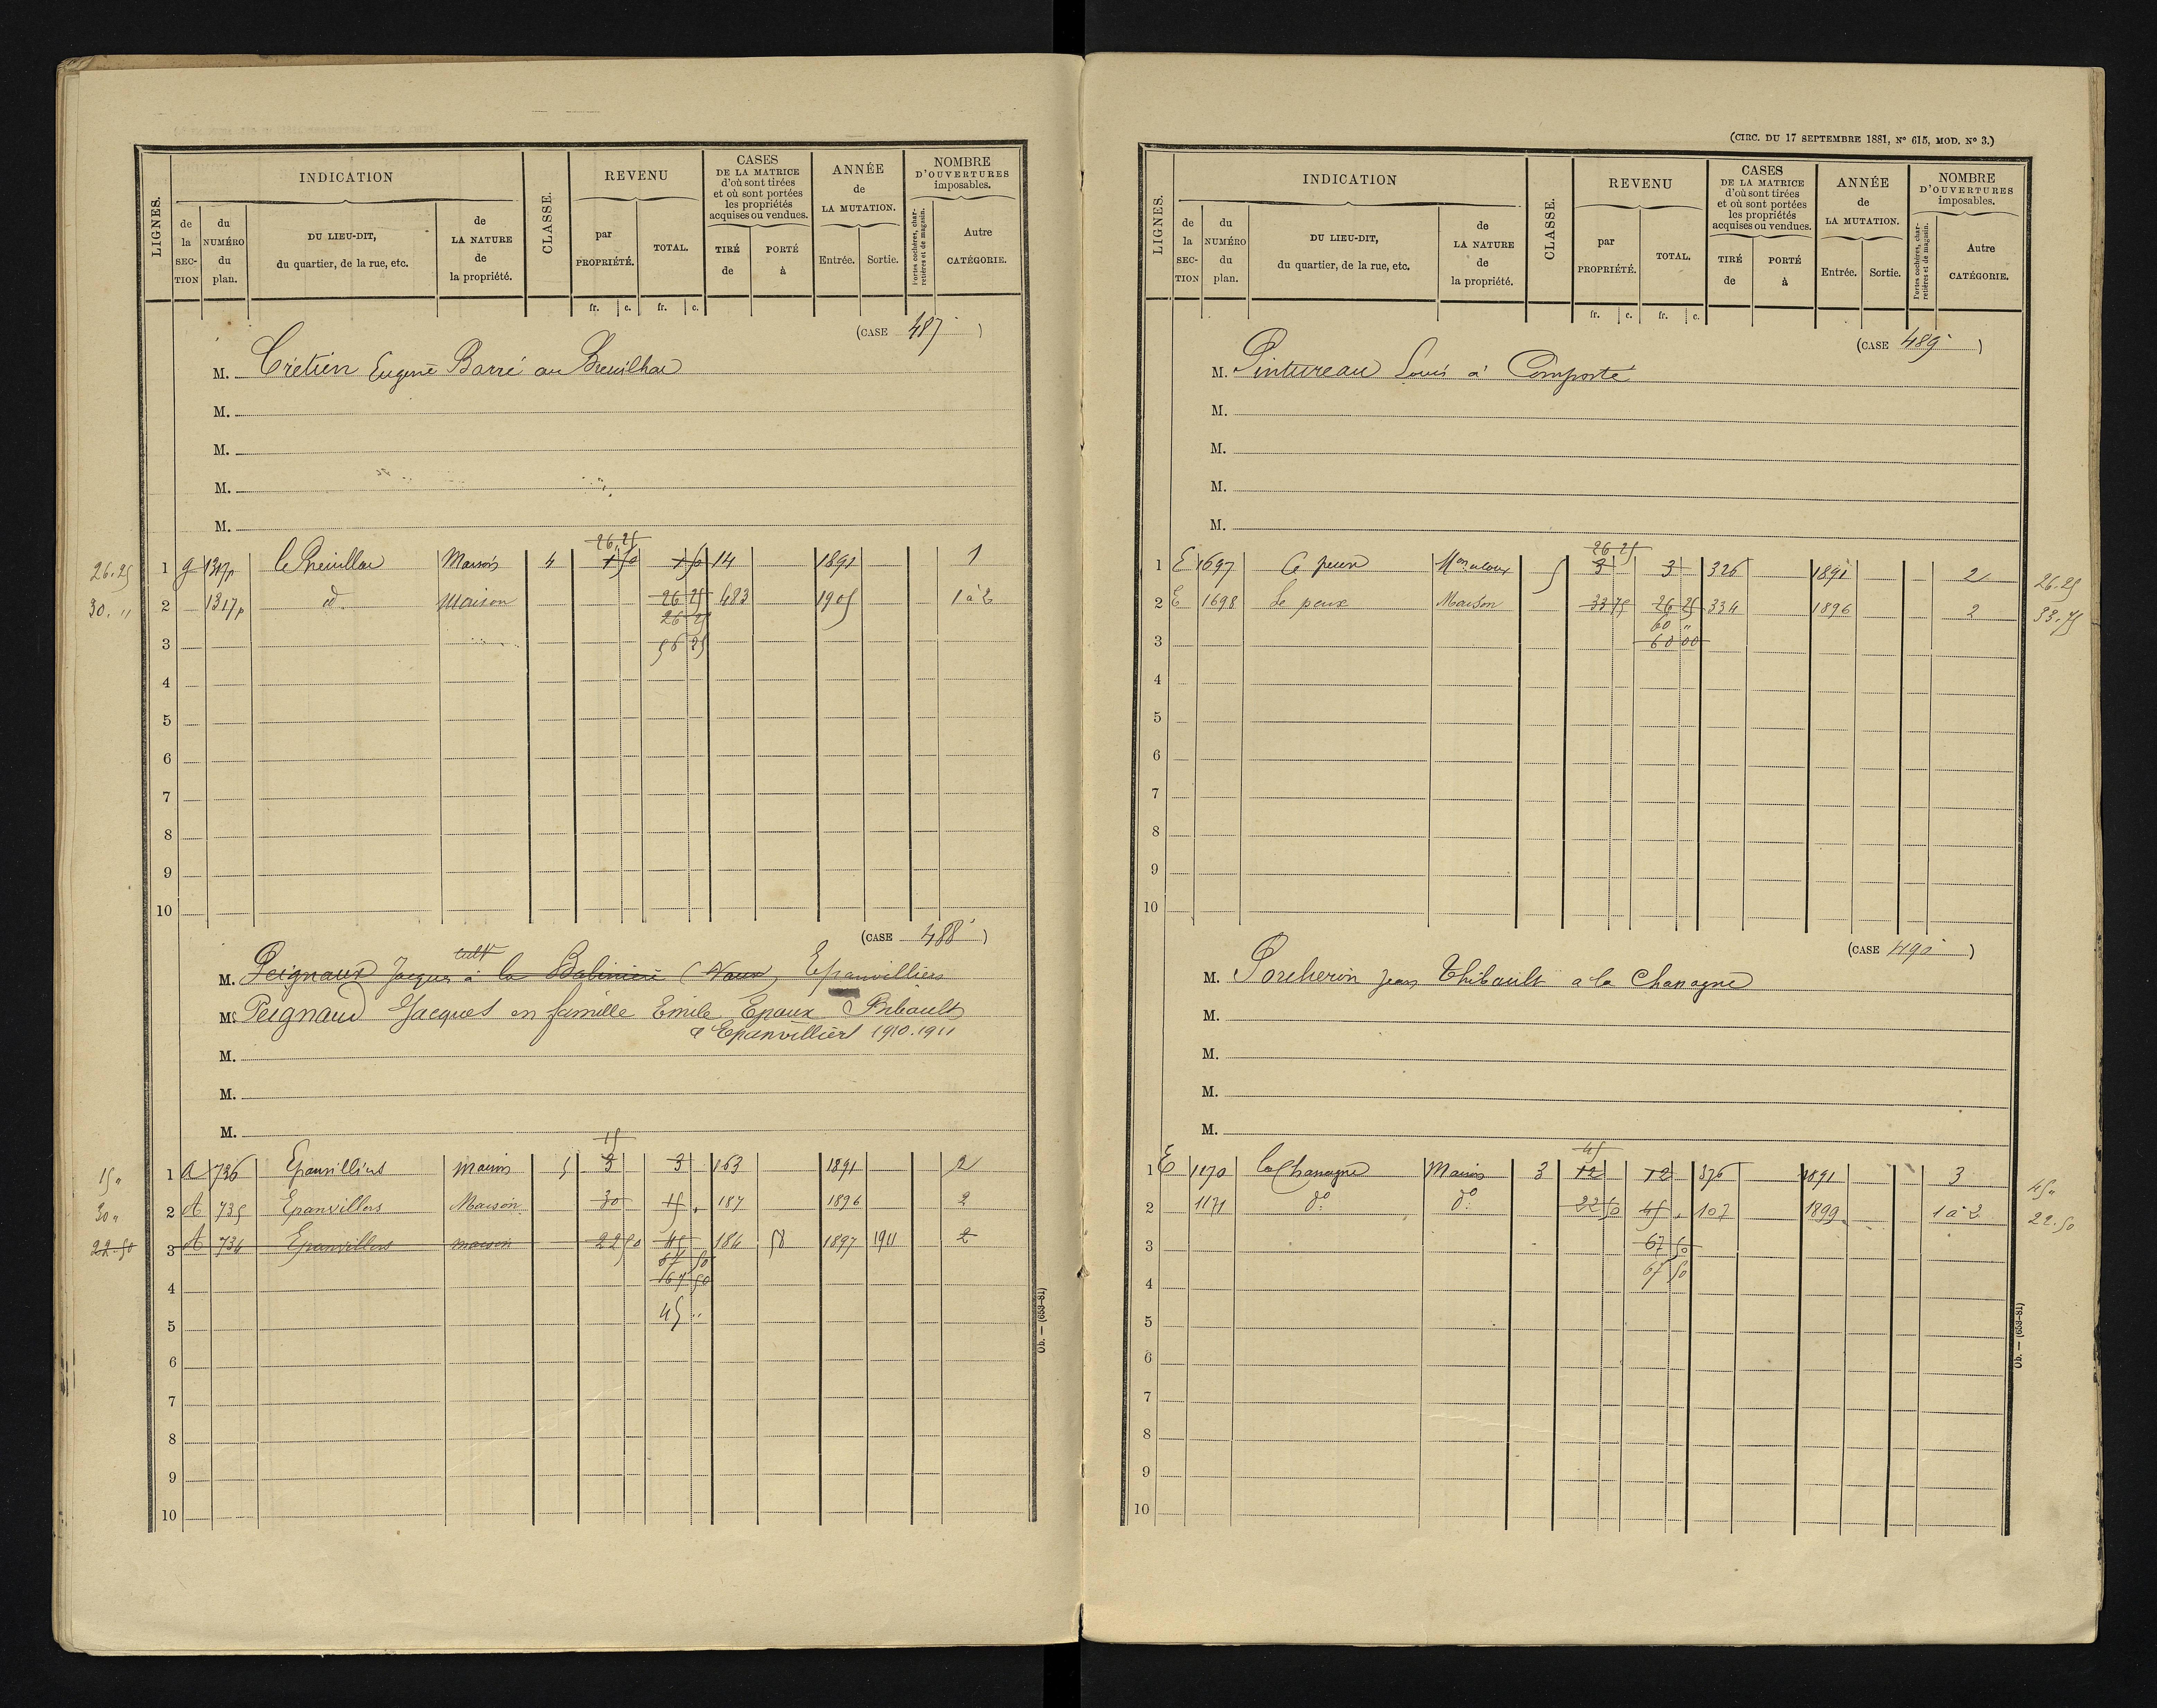 LIGNES.
INDICATION
de la SECTION
du NUMÉRO du plan.
DU LIEU-DIT, du quartier, de la rue, etc.
de LA NATURE de la propriété.
CLASSE.
REVENU
par PROPRIÉTÉ.
TOTAL.
CASES DE LA MATRICE d'où sont tirées et où sont portées les propriétés acquises ou vendues.
TIRÉ de
PORTÉ à
ANNÉE de LA MUTATION.
Entrée.
Sortie.
NOMBRE D'OUVERTURES imposables.
Portes cochères, charretières et de magasin.
Autre CATÉGORIE.
fr. c. fr. c.
(CASE 487 )
M. Crétien Eugène Barré au
M.
M.
M.
M.
26 25
26.25 1 g 1317p Maison 4 1 50 1 50 14 1891 1
30. " 2 1317p d. Maison 26 25 483 1905 1 à 2
26 25
3 56 25
4
5
6
7
8
9
10
(CASE 488 )
M. Peignaux Jacques à la (Vaux) Epanvilliers
M. Peignaud Jacques en famille Emile Epaux Thibault
a Epanvilliers 1910.1911
M.
M.
M.
15
15 " 1 A 736 Epanvilliers maison 5 3 3 163 1891 2
30 " 2 A 735 Epanvillers Maison 30 15 " 187 1896 2
22.50 3 A 734 Epanvillers maison 22 50 45 184 58 1897 1911 2
67 50
4 167 50
5 45 "
6
7
8
9
10
Ob. — (653-81)
(CIRC. DU 17 SEPTEMBRE 1881, N° 615, MOD. N° 3.)
LIGNES.
INDICATION
de la SECTION
du NUMÉRO du plan.
DU LIEU-DIT, du quartier, de la rue, etc.
de LA NATURE de la propriété.
CLASSE.
REVENU
par PROPRIÉTÉ.
TOTAL.
CASES DE LA MATRICE d'où sont tirées et où sont portées les propriétés acquises ou vendues.
TIRÉ de
PORTÉ à
ANNÉE de LA MUTATION.
Entrée.
Sortie.
NOMBRE D'OUVERTURES imposables.
Portes cochères, charretières et de magasin.
Autre CATÉGORIE.
fr. c. fr. c.
(CASE 489 )
M. Pintureau Louis à Comporté
M.
M.
M.
M.
26 25
1 E 1697 5 3 3 326 1891 2 26.25
2 E 1698 Le peux Maison 33 75 26 25 334 1896 2 33.75
60 "
3 60 00
4
5
6
7
8
9
10
(CASE 490 )
M. Porcheron Jean Thibault a la Chanagne
M.
M.
M.
M.
45
1 E 1170 la Chanagne Maison 3 12 12 376 1891 3 45 "
2 1171 d° d° 22 50 45 " 107 1899 1 à 2 22.50
3 67 50
4 67 50
5
6
7
8
9
10
Ob. — (653-81)